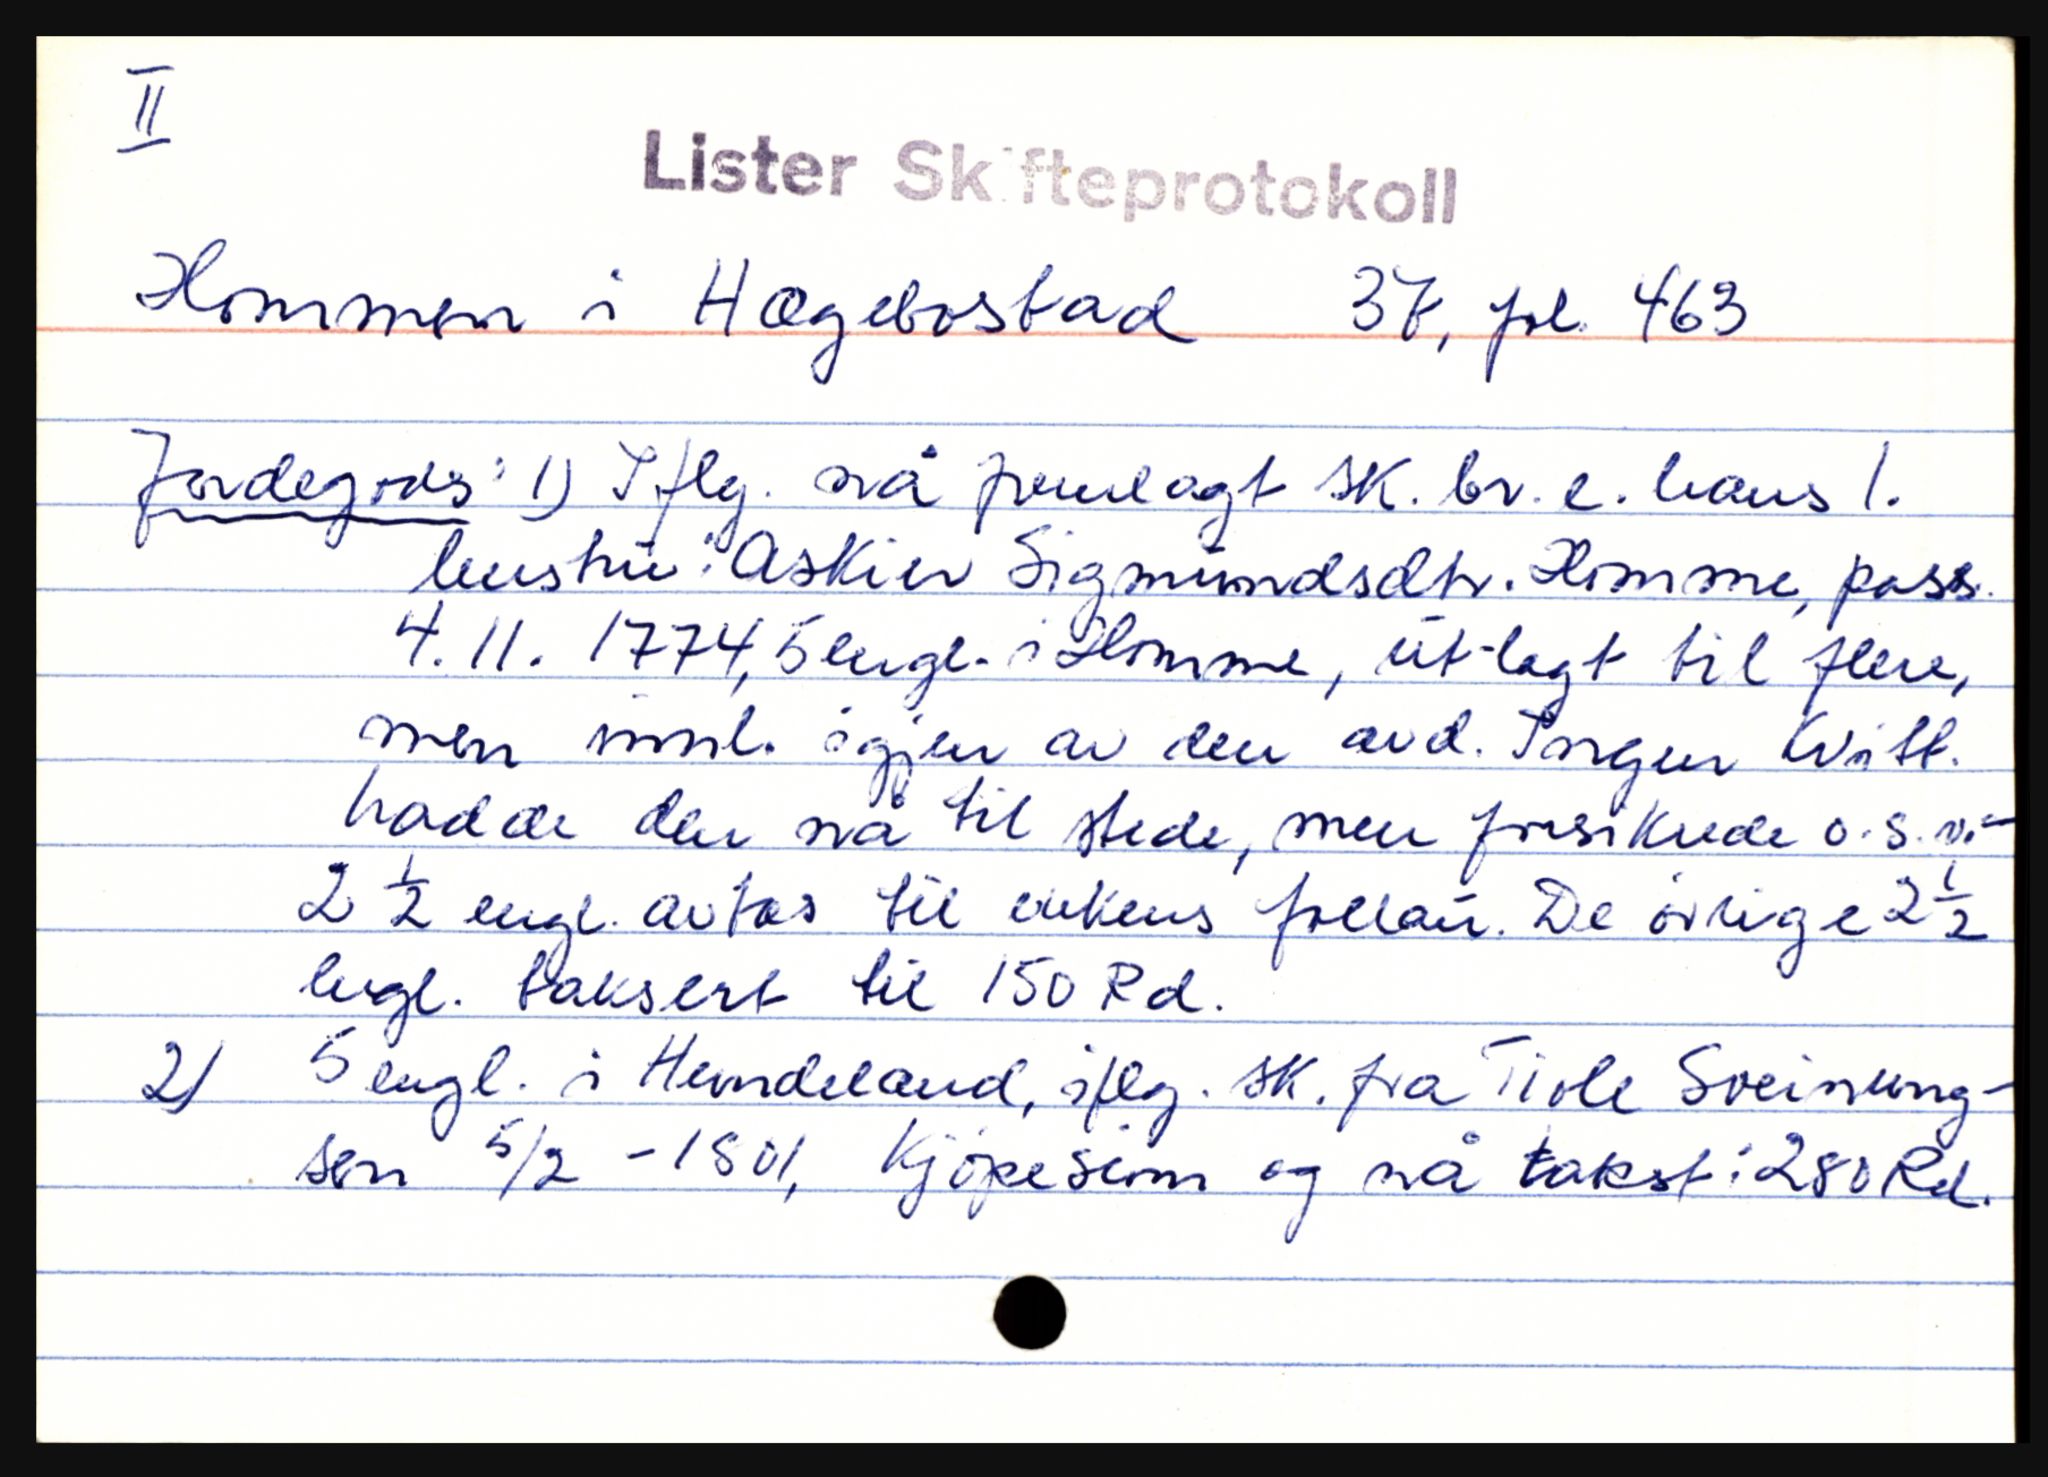 II
Lister Skifteprotokoll
Hommen i Hægebostad 37, fol. 463
Jordegods: 1) Iflg. nå fremlagt sk. br. e. hans 1.
hustru: Askier Sigmundsdtr. Homme, pass.
4. 11. 1774, 5 engl. i Homme, utlagt til flere,
men innl. igjen av den avd. Ingen kvitt.
hadde den nå til stede, men forsikrede o.s.v.-
2 1/2 engl. avtas til enkens follau. De øvrige 2 1/2
engl. taksert til 150 Rd.
2) 5 engl. i Hundeland, iflg. sk. fra Tiole Sveinung-
sen 5/2 - 1801, Kjøpesum og nå takst: 280 Rd.